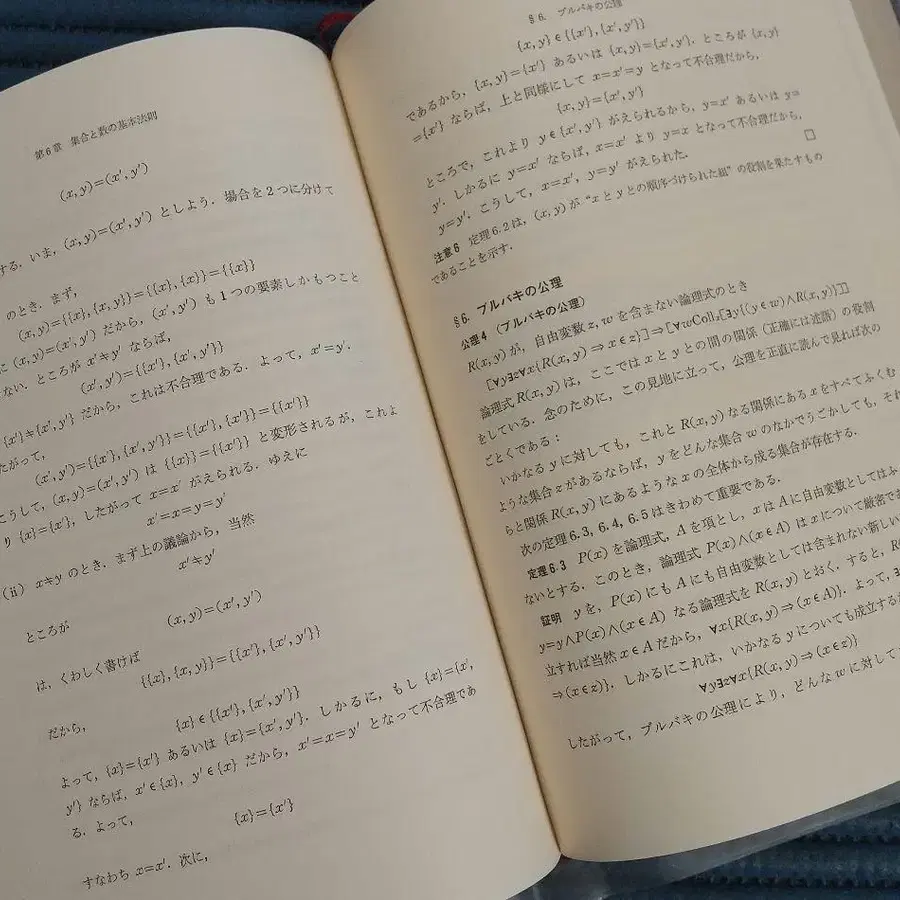 第6章 集合と数の基本法則
(x, y)=(x′, y′)
する．いま，(x, y)=(x′, y′) としよう．場合を2つに分けて
のとき．まず，
(x, y)={{x}, {x, y}}={{x}, {x}}={{x}}
に (x, y)=(x′, y′) だから，(x′, y′) も1つの要素しかもつこと
ない．ところが x′≠y′ ならば，
(x′, y′)={{x′}, {x′, y′}}
{x′}≠{x′, y′} だから，これは不合理である．よって，x′=y′．
たがって，
(x′, y′)={{x′}, {x′, y′}}={{x′}, {x′}}={{x′}}
こうして，(x, y)=(x′, y′) は {{x}}={{x′}} と変形されるが，これよ
り {x}={x′}，したがって x=x′ がえられる．ゆえに
x′=x=y=y′
(ii) x≠y のとき．まず上の議論から，当然
x′≠y′
ところが
(x, y)=(x′, y′)
は，くわしく書けば
{{x}, {x, y}}={{x′}, {x′, y′}}
だから，
{x}∈{{x′}, {x′, y′}}
よって，{x}={x′} あるいは {x}={x′, y′}．しかるに，もし {x}={x′,
y′} ならば，x′∈{x}, y′∈{x} だから，x′=x=y′ となって不合理であ
る．よって，
{x}={x′}
すなわち x=x′．次に，
§6. ブルバキの公理
{x, y}∈{{x′}, {x′, y′}}
であるから，{x, y}={x′} あるいは {x, y}={x′, y′}．ところが {x, y}
={x′} ならば，上と同様にして x=x′=y となって不合理だから，
{x, y}={x′, y′}
ところで，これより y∈{x′, y′} がえられるから，y=x′ あるいは y=
y′．しかるに y=x′ ならば，x=x′ より y=x となって不合理だから，
y=y′．こうして，x=x′, y=y′ がえられた． □
注意6 定理6.2は，(x, y) が “x と y との順序づけられた組” の役割を果たすもの
であることを示す．
§6. ブルバキの公理
公理4（ブルバキの公理）
R(x, y) が，自由変数 z, w を含まない論理式のとき
[∀y∃z∀x{R(x, y) ⇒ x∈z}]⇒[∀wCollₓ[∃y{(y∈w)∧R(x, y)}]]
論理式 R(x, y) は，ここでは x と y との間の関係（正確には述語）の役割
をしている．念のために，この見地に立って，公理を正直に読んで見れば次の
ごとくである：
いかなる y に対しても，これと R(x, y) なる関係にある x をすべてふくむ
ような集合 z があるならば，y をどんな集合 w のなかでうごかしても，それ
らと関係 R(x, y) にあるような x の全体から成る集合が存在する．
次の定理 6.3, 6.4, 6.5 はきわめて重要である．
定理6.3 P(x) を論理式，A を項とし，x は A に自由変数としてはふ
ないとする．このとき，論理式 P(x)∧(x∈A) は x について厳密で
証明 y を，P(x) にも A にも自由変数としては含まれない新しい
y=y∧P(x)∧(x∈A) なる論理式を R(x, y) とおく．すると，R(
立すれば当然 x∈A だから，∀x{R(x, y)⇒(x∈A)}．よって，∃
⇒(x∈z)}．しかるにこれは，いかなる y についても成立する
∀y∃z∀x{R(x, y)⇒(x∈z)}
したがって，ブルバキの公理により，どんな w に対して